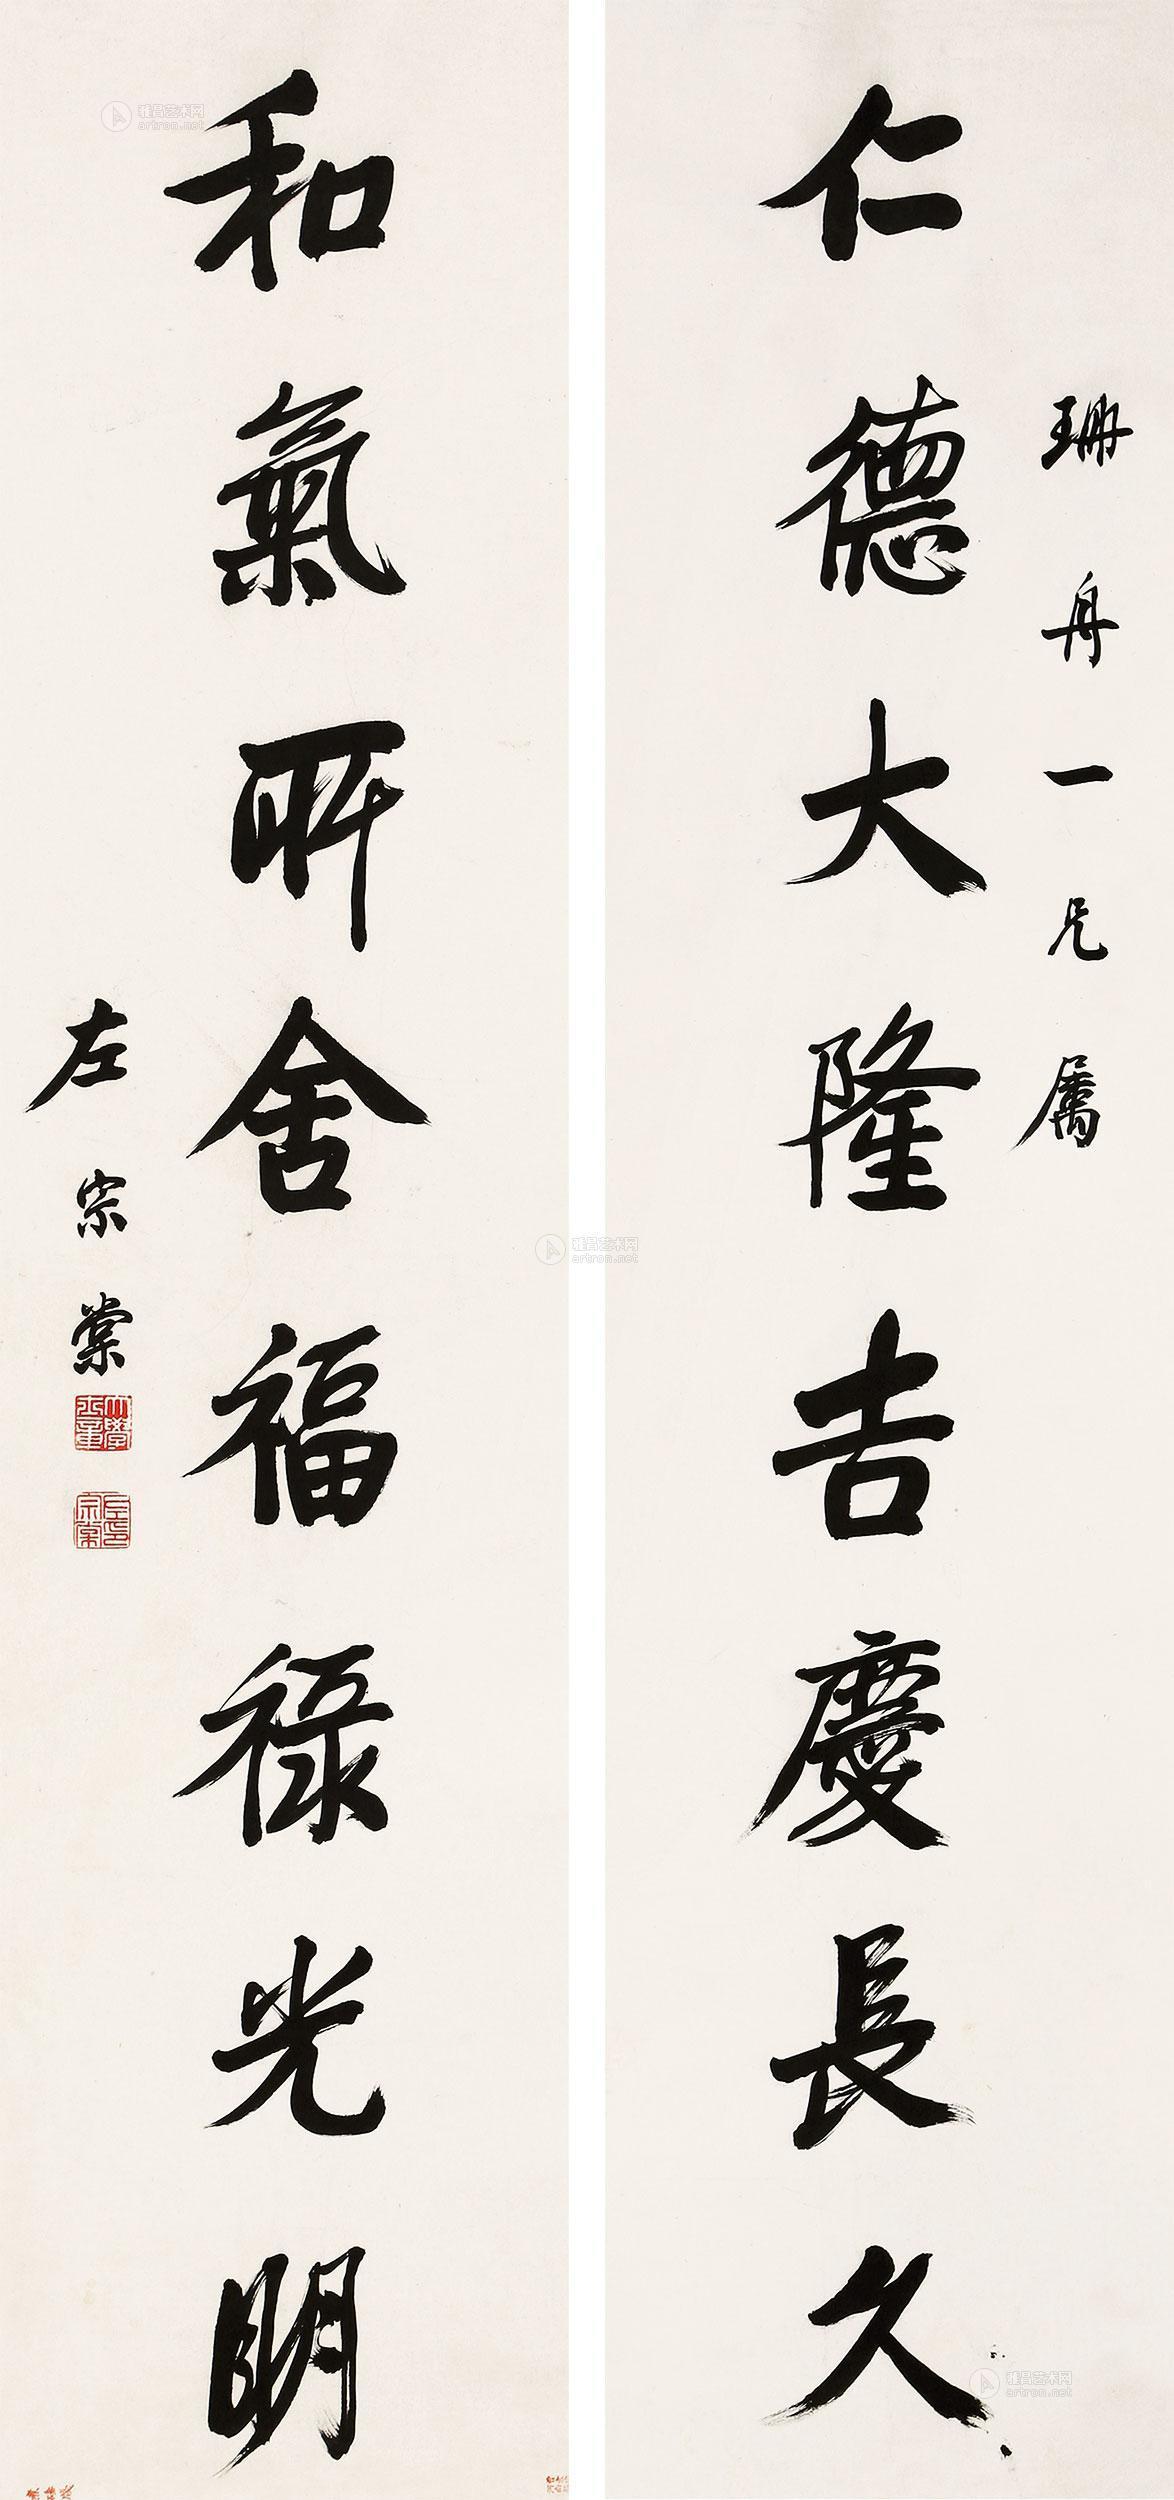 珊舟一兄属
仁德大隆吉慶長久
和氣所舍福禄光明
左宗棠
大學士章
左宗棠印
雅昌艺术网
artron.net
雅昌艺术网
artron.net
雅昌艺术网
artron.net